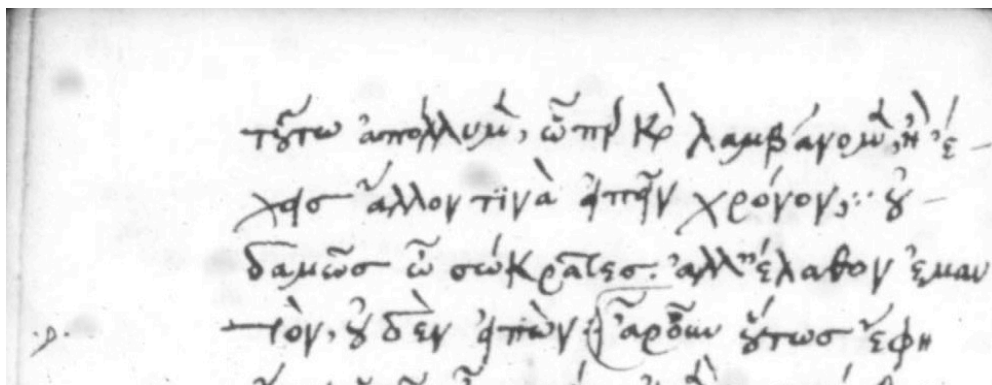 τούτω ἀπόλλυμεν, ὧπερ καὶ λαμβάνομεν, ἢ ἔ
χεις ἄλλον τινὰ εἰπεῖν χρόνον; οὐ
δαμῶς ὦ σώκρατες. ἀλλ' ἔλαθον ἐμαυ
τὸν, οὐδὲν εἰπών: ἆρ οὖν οὕτως ἔφη